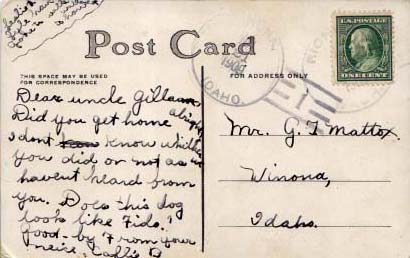 Post Card
THIS SPACE MAY BE USED
FOR CORRESPONDENCE
FOR ADDRESS ONLY
U.S. POSTAGE
ONE CENT
IDAHO.
Dear uncle
Did you get home alright
I dont know whither
you did or not as we
havent heard from
you. Does this dog
look like Fido?
good-by From your
neice,
Mr. G T Mattox.
Winona,
Idaho.